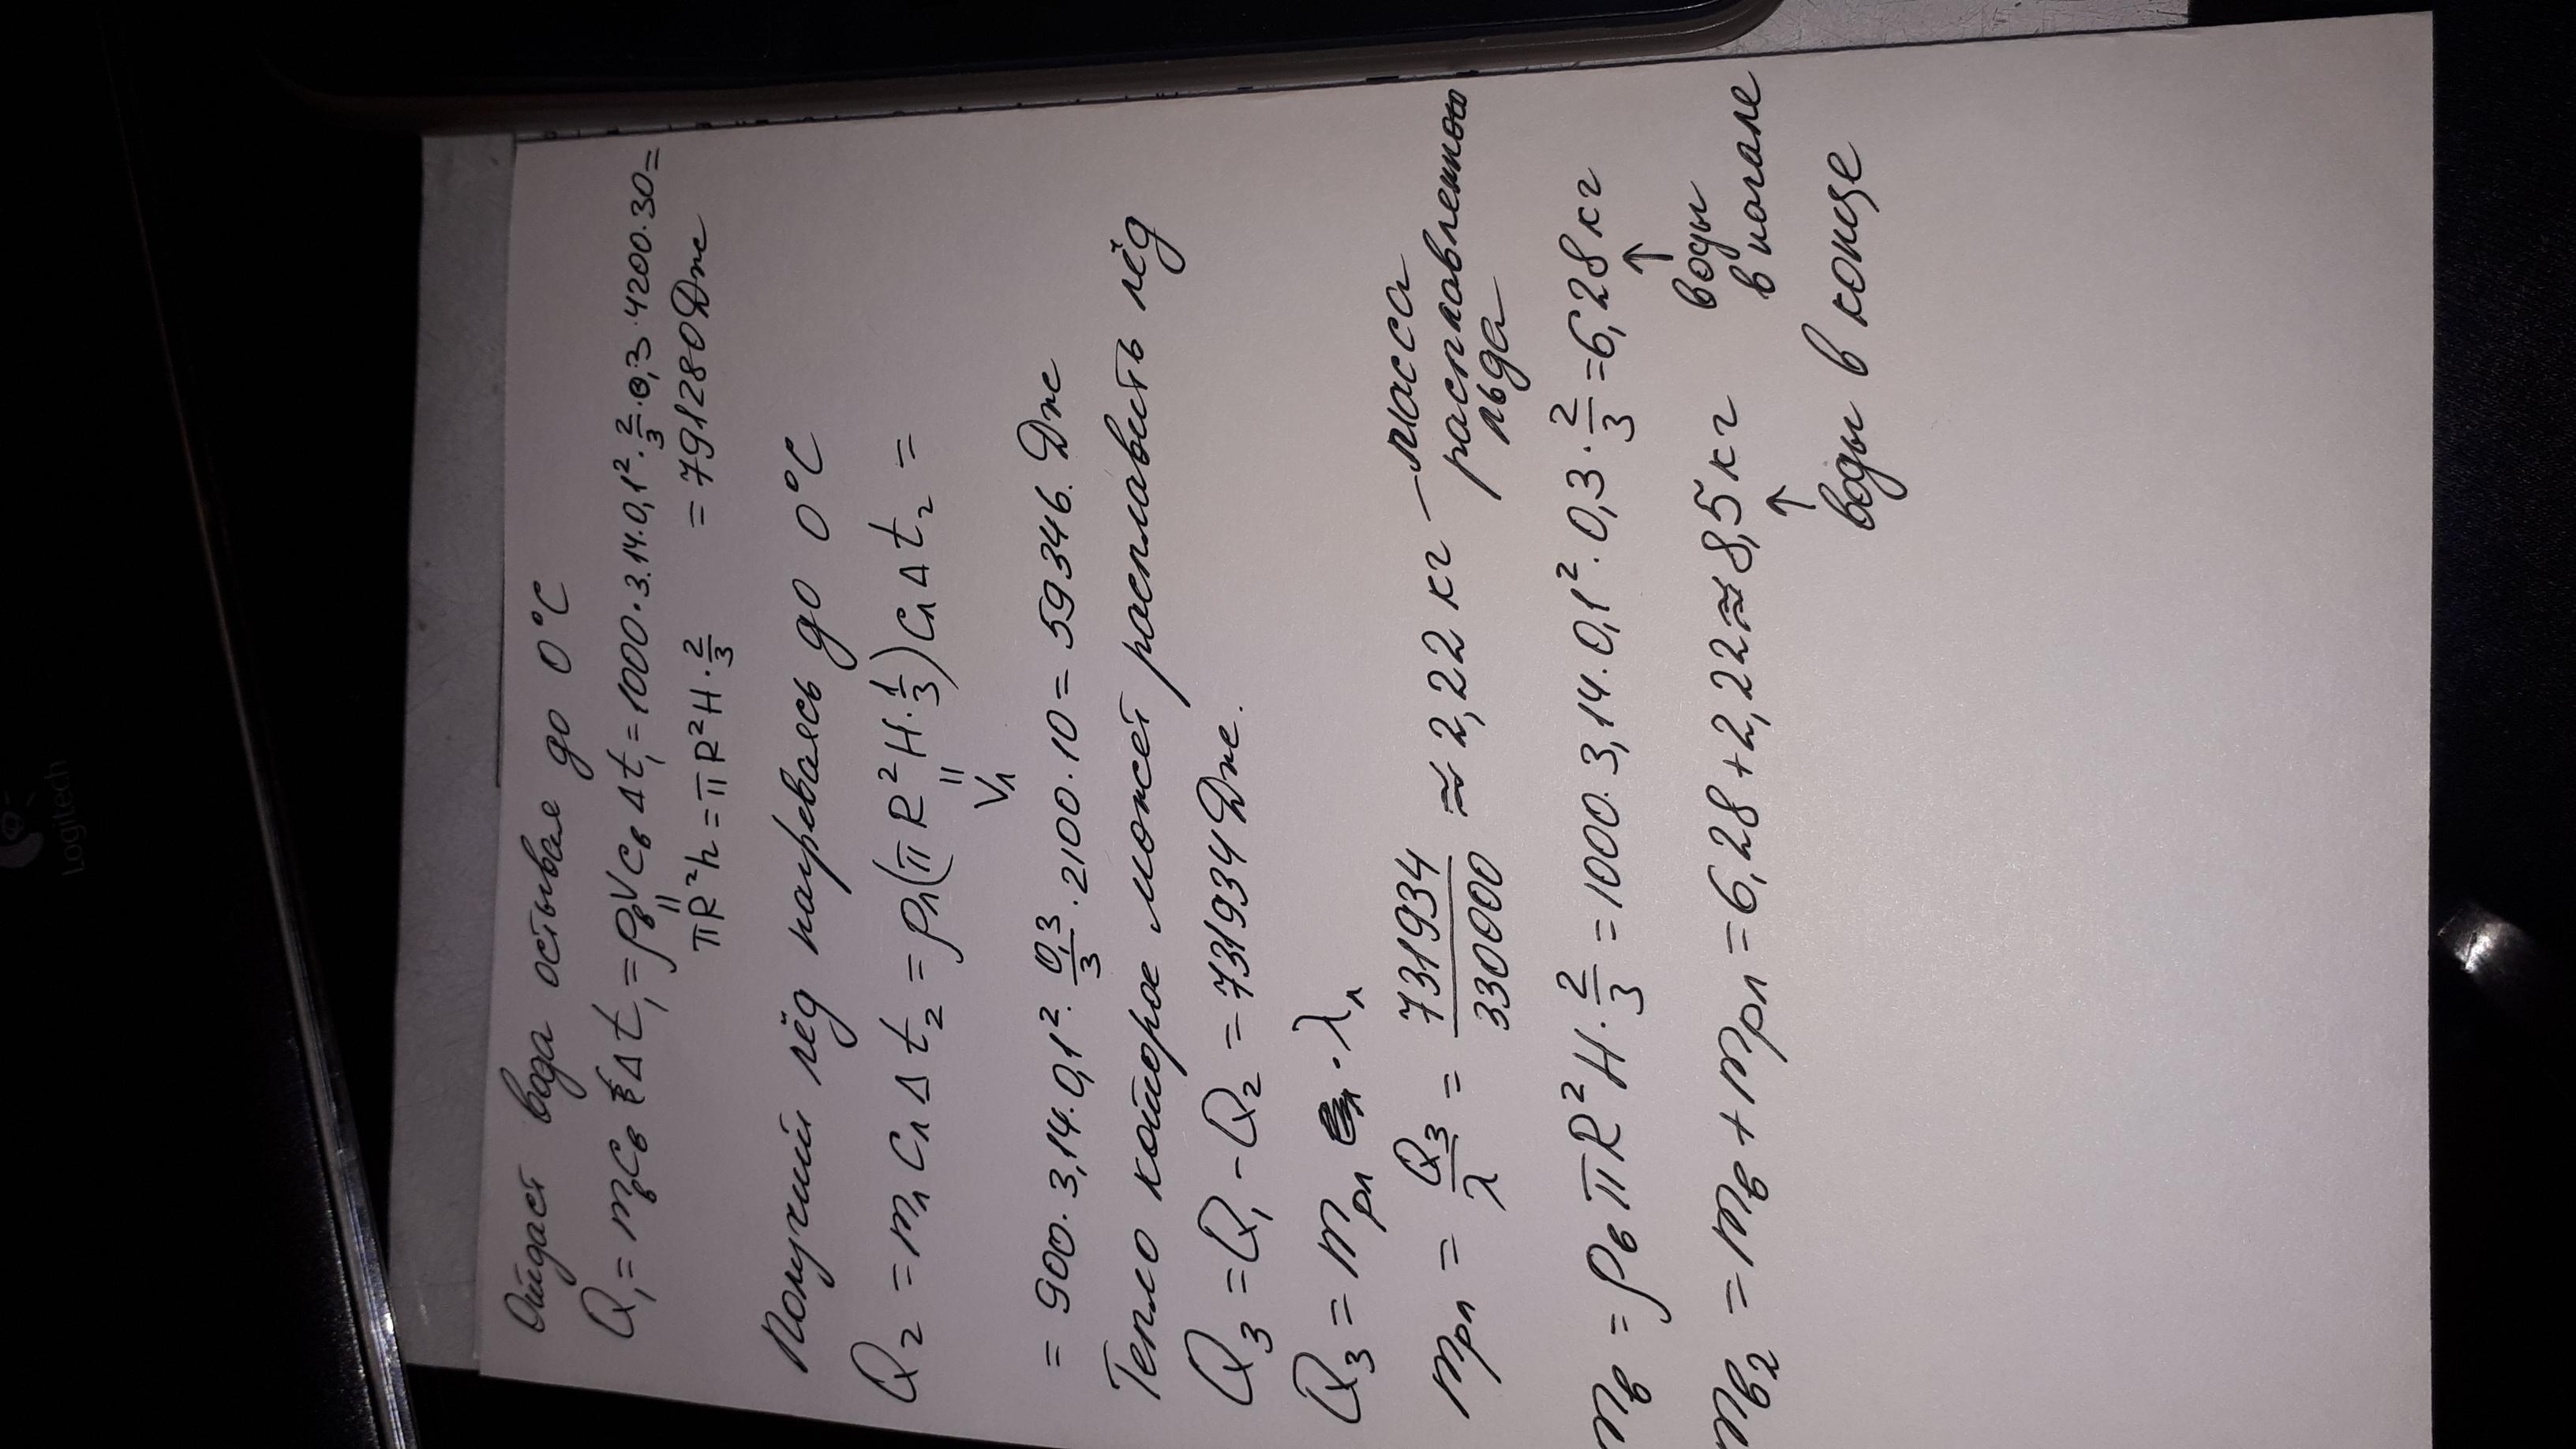 Отдаст вода остывая до 0°C
Q₁ = m_в c_в Δt₁ = ρ_в V c_в Δt₁ = 1000·3.14·0,1²·2/3·0,3·4200·30 =
πR²h = πR²H·2/3 = 791280 Дж
Получит лёд нагреваясь до 0°C
Q₂ = m_л c_л Δt₂ = ρ_л(πR²H·1/3)c_л Δt₂ =
V_л
= 900·3,14·0,1²·0,3/3·2100·10 = 59346 Дж
Тепло которое может расплавить лёд
Q₃ = Q₁ - Q₂ = 731934 Дж.
Q₃ = m_рл · λ_л
m_рл = Q₃/λ = 731934/330000 ≈ 2,22 кг — масса
расплавленного
льда
m_в = ρ_в πR²H·2/3 = 1000·3,14·0,1²·0,3·2/3 = 6,28 кг
↑
воды
в начале
m_в₂ = m_в + m_рл = 6,28 + 2,22 ≈ 8,5 кг
↑
воды в конце
Logitech